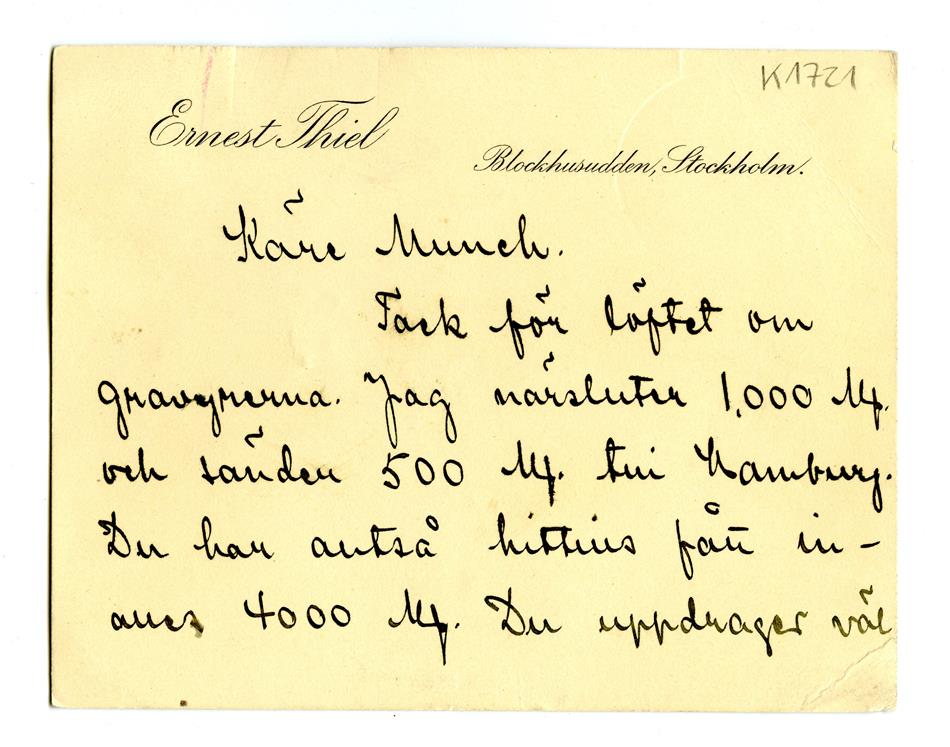 K1721
Ernest Thiel
Blockhusudden, Stockholm.
Käre Munch.
Tack för löftet om
gravyrerna. Jag närsluter 1,000 M.
och sänder 500 M. till Hamburg.
Du har alltså hittills fått in-
alles 4000 M. Du uppdrager väl